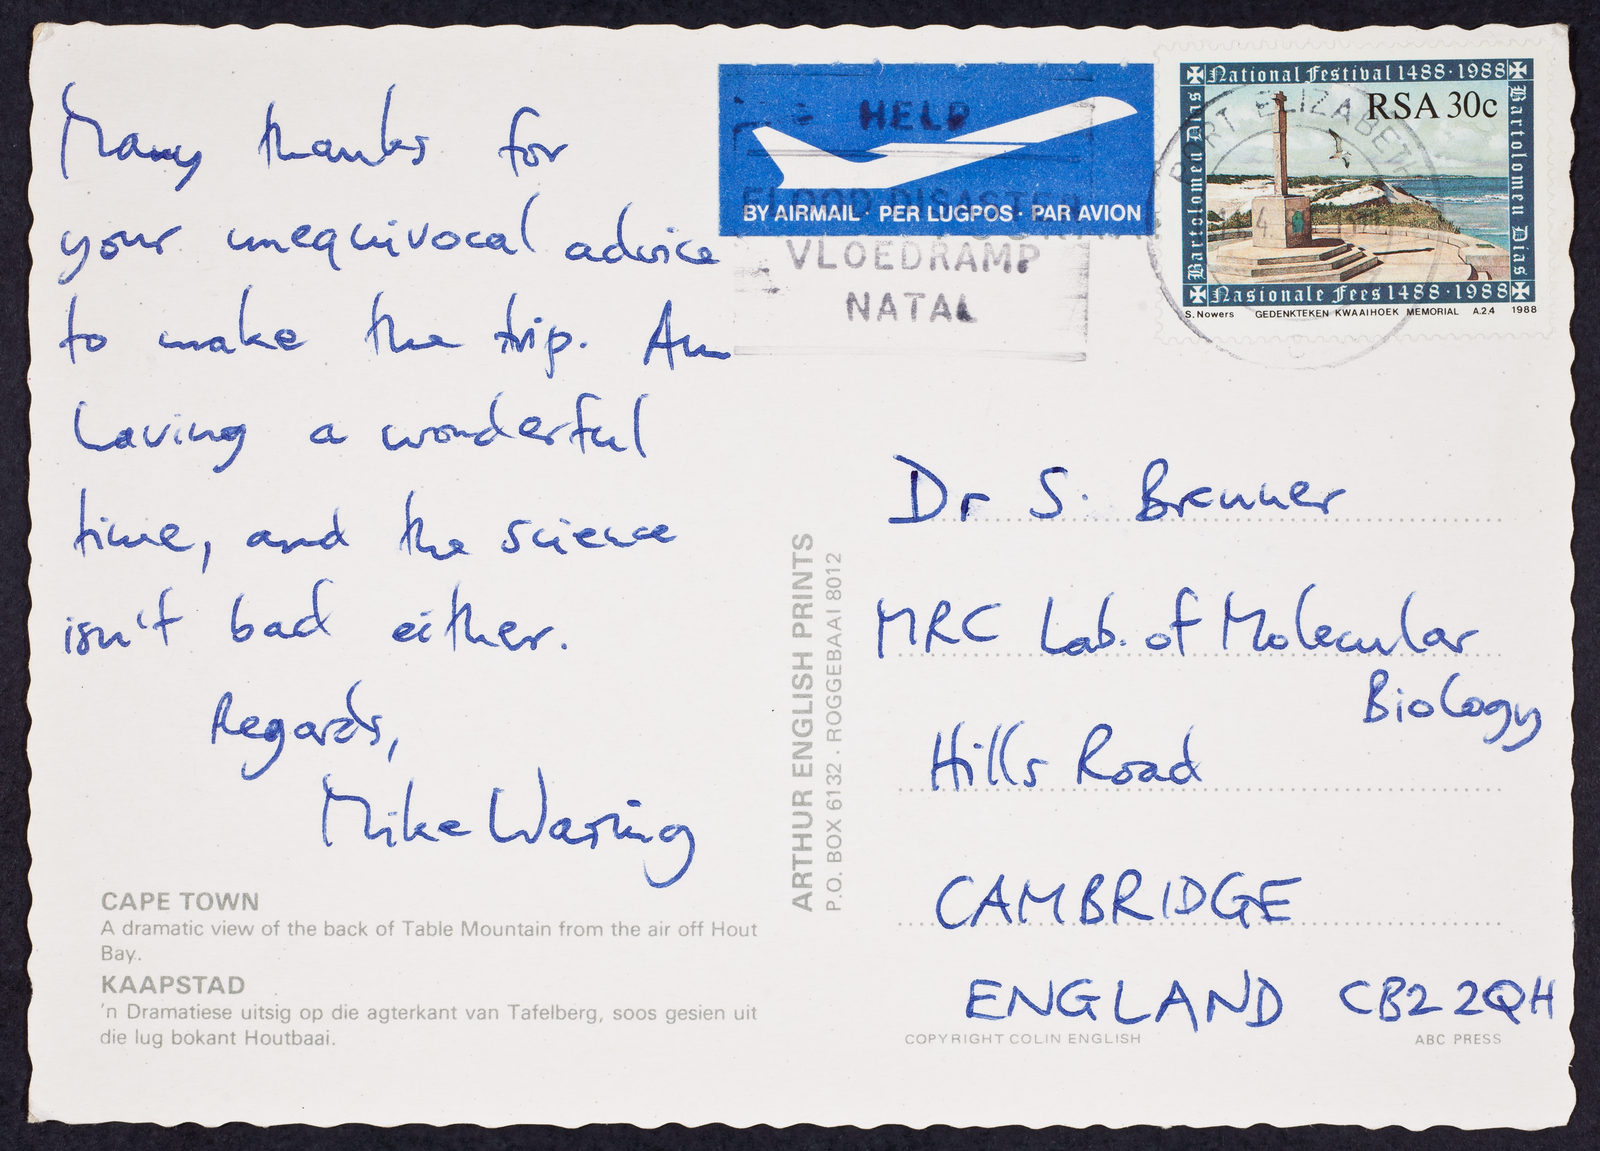 Many thanks for
your unequivocal advice
to make the trip. Am
having a wonderful
time, and the science
isn't bad either.
Regards,
Mike Waring
CAPE TOWN
A dramatic view of the back of Table Mountain from the air off Hout
Bay.
KAAPSTAD
'n Dramatiese uitsig op die agterkant van Tafelberg, soos gesien uit
die lug bokant Houtbaai.
ARTHUR ENGLISH PRINTS
P.O. BOX 6132 . ROGGEBAAI 8012
HELP
FLOOD DISASTER
BY AIRMAIL · PER LUGPOS · PAR AVION
VLOEDRAMP
NATAL
PORT ELIZABETH
National Festival 1488·1988
RSA 30c
Bartolomeu Dias
Bartolomeu Dias
Nasionale Fees 1488·1988
S.Nowers GEDENKTEKEN KWAAIHOEK MEMORIAL A.2.4 1988
Dr S. Brenner
MRC Lab. of Molecular
Biology
Hills Road
CAMBRIDGE
ENGLAND CB2 2QH
COPYRIGHT COLIN ENGLISH
ABC PRESS